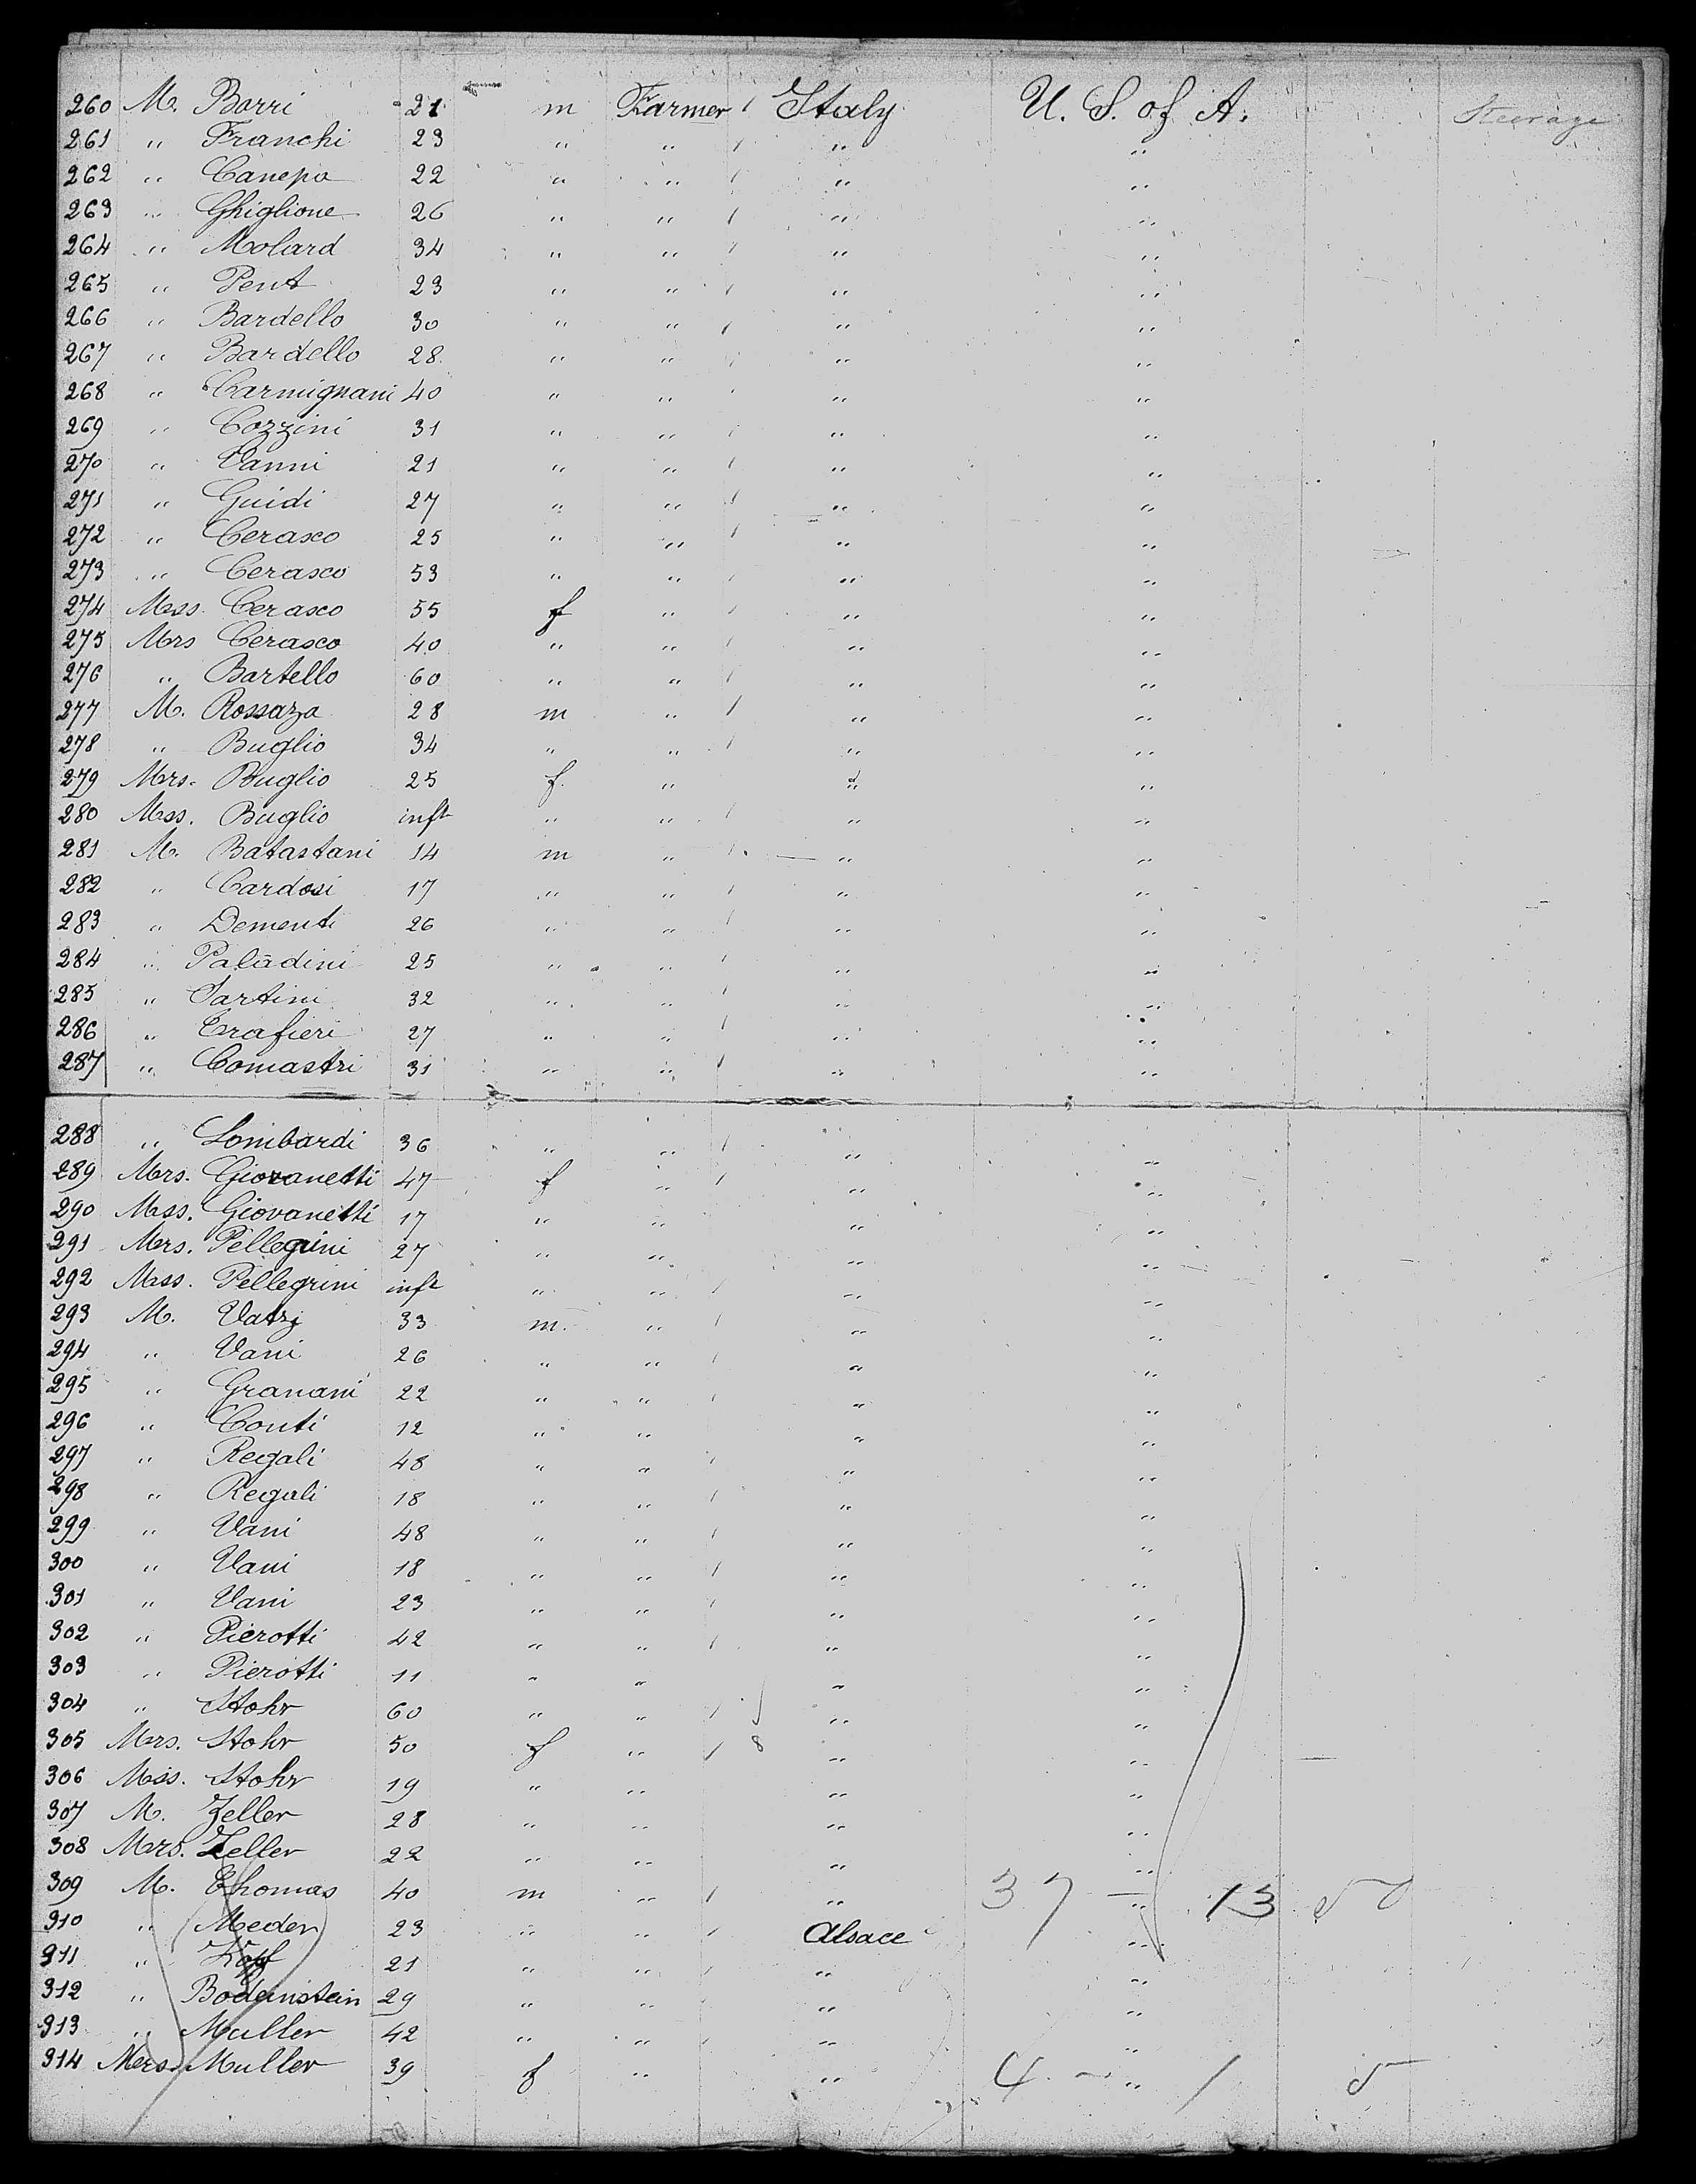 260 M. Barri 21 m Farmer Italy U. S. of A. Steerage
261 " Franchi 23 " " " "
262 " Canepa 22 " " " "
263 " Ghiglione 26 " " " "
264 " Molard 34 " " " "
265 " Pent 23 " " " "
266 " Bardello 30 " " " "
267 " Bardello 28 " " " "
268 " Carmignani 40 " " " "
269 " Cozzini 31 " " " "
270 " Vanni 21 " " " "
271 " Guidi 27 " " " "
272 " Cerasco 25 " " " "
273 " Cerasco 53 " " " "
274 Mss. Cerasco 55 f " " "
275 Mrs Cerasco 40 " " " "
276 " Bartello 60 " " " "
277 M. Rossaza 28 m " " "
278 " Buglio 34 " " " "
279 Mrs. Buglio 25 f. " " "
280 Mss. Buglio inft " " " "
281 M. Batastani 14 m " " "
282 " Cardosi 17 " " " "
283 " Dementi 26 " " " "
284 " Paladini 25 " " " "
285 " Sartini 32 " " " "
286 " Trafieri 27 " " " "
287 " Comastri 31 " " " "
288 " Lombardi 36 " " " "
289 Mrs. Giovanetti 47 f " " "
290 Mss. Giovanetti 17 " " " "
291 Mrs. Pellegrini 27 " " " "
292 Mss. Pellegrini inft " " " "
293 M. 33 m. " " "
294 " Vani 26 " " " "
295 " Granani 22 " " " "
296 " Conti 12 " " " "
297 " Regali 48 " " " "
298 " Regali 18 " " " "
299 " Vani 48 " " " "
300 " Vani 18 " " " "
301 " Vani 23 " " " "
302 " Pierotti 42 " " " "
303 " Pierotti 11 " " " "
304 " Stohr 60 " " " "
305 Mrs. Stohr 50 f " 8 " "
306 Mss. Stohr 19 " " " "
307 M. Zeller 28 " " " "
308 Mrs. Zeller 22 " " " "
309 M. Thomas 40 m " " " 37 — 13 50
310 " Meder 23 " " Alsace "
311 " 21 " " " "
312 " Bodenstein 29 " " " "
313 " Muller 42 " " " "
314 Mrs. Muller 39 f " " " 4 — 1 5